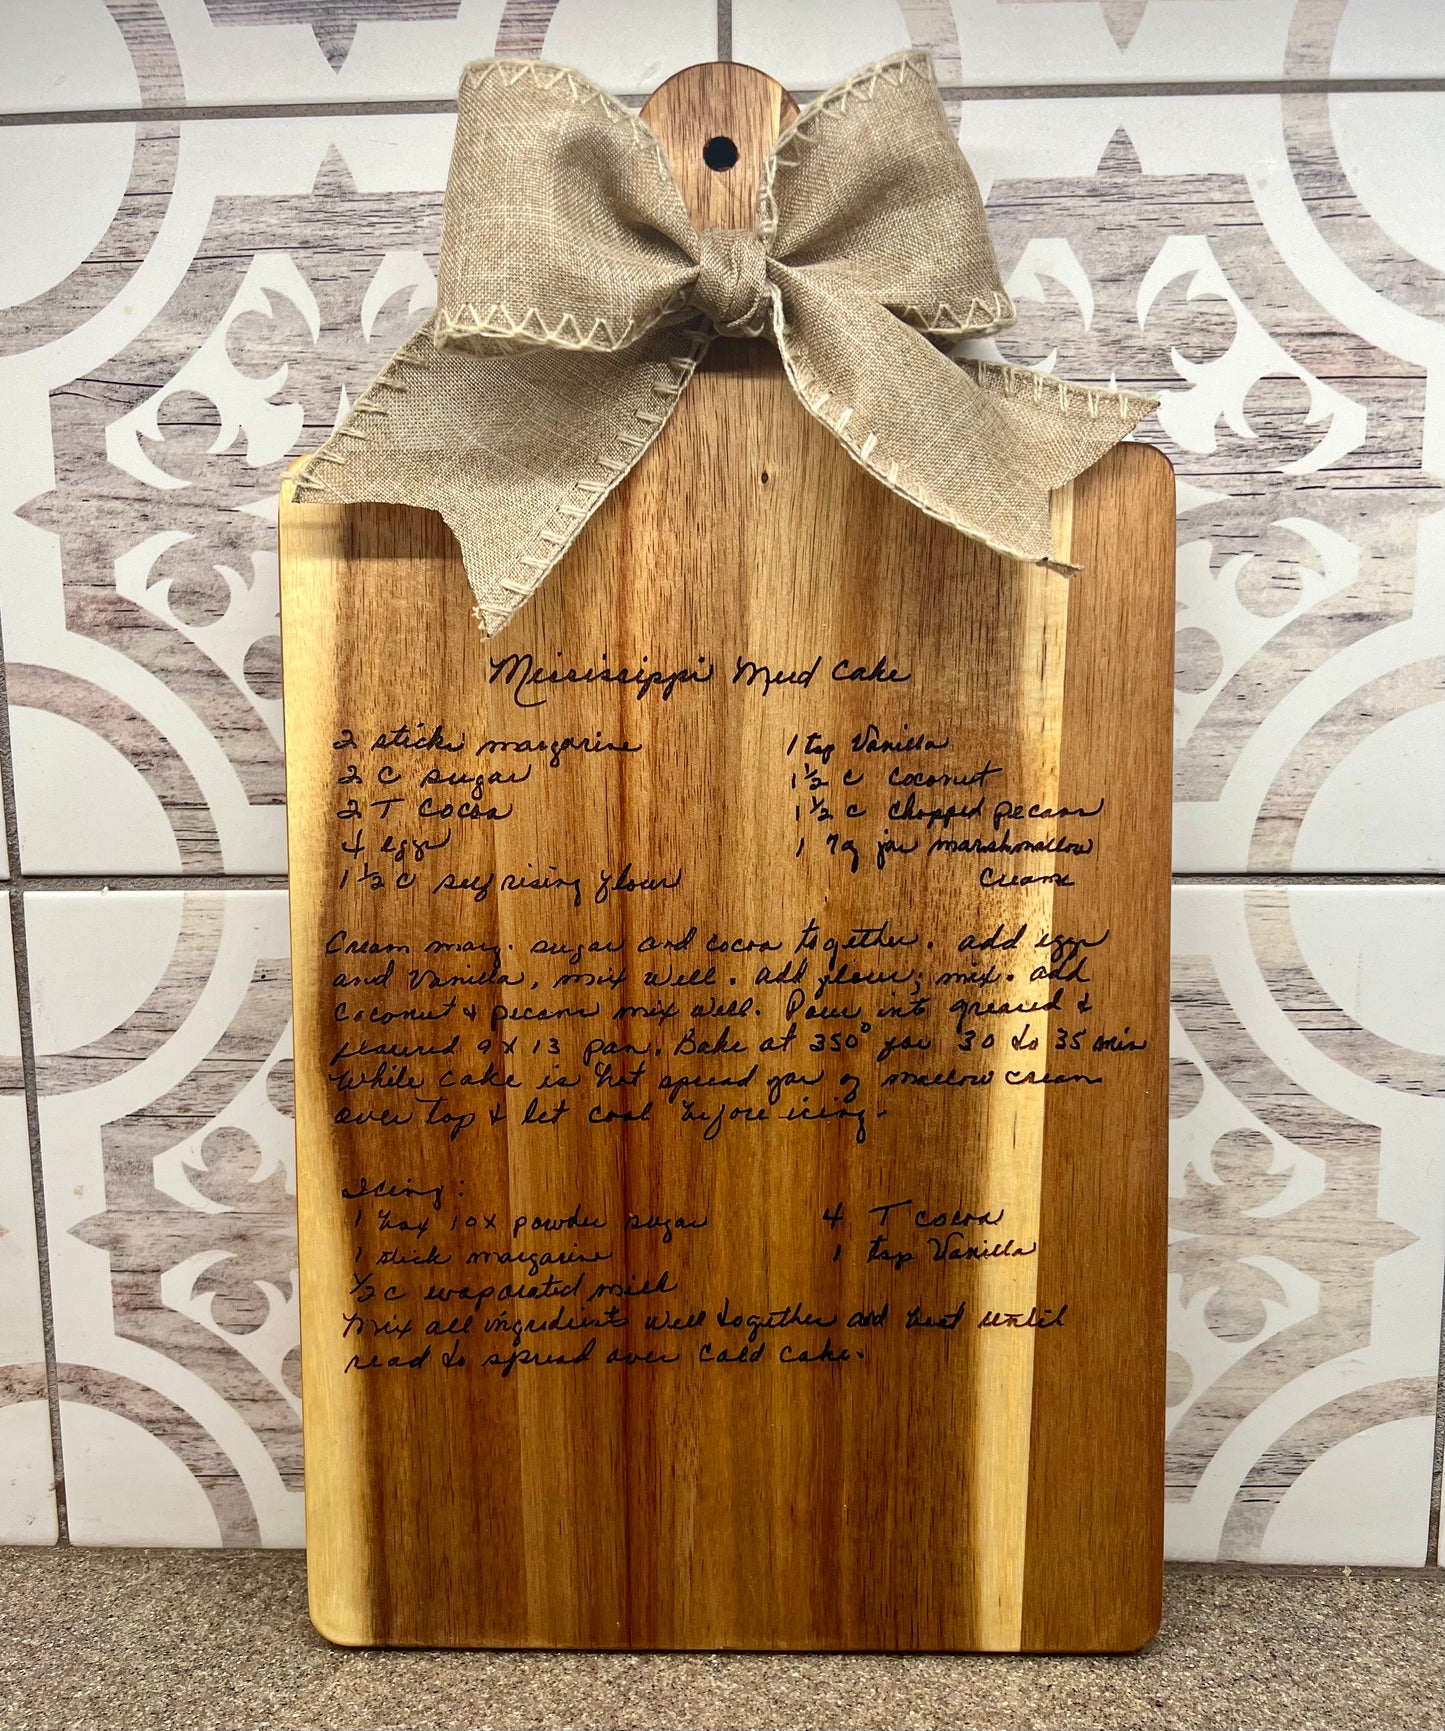 Mississippi Mud Cake
2 sticks margarine
2 c sugar
2 T cocoa
4 eggs
1 1/2 c self rising flour
1 tsp Vanilla
1 1/2 c coconut
1 1/2 c chopped pecans
1 7oz jar marshmallow
creame
Cream marg. sugar and cocoa together. add eggs
and Vanilla, mix well. add flour; mix. add
coconut & pecans mix well. Pour into greased &
floured 9 x 13 pan. Bake at 350° for 30 to 35 min
While cake is hot spread jar of mallow cream
over top & let cool before icing.
Icing:
1 box 10x powder sugar
1 stick margarine
1/2 c evaporated milk
4 T cocoa
1 tsp Vanilla
Mix all ingredients well together and beat until
read to spread over cold cake.